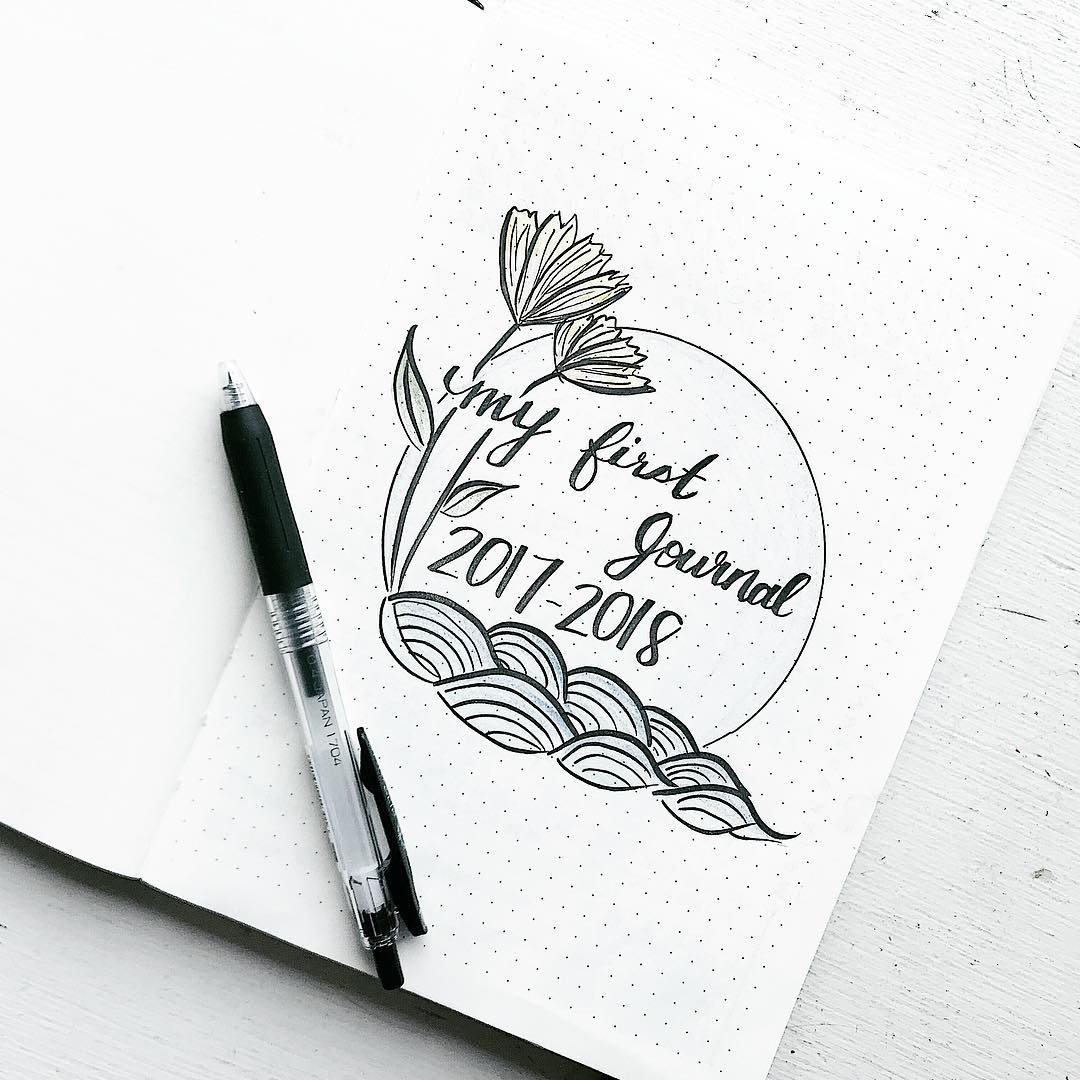 my first
Journal
2017-2018
JAPAN 1704